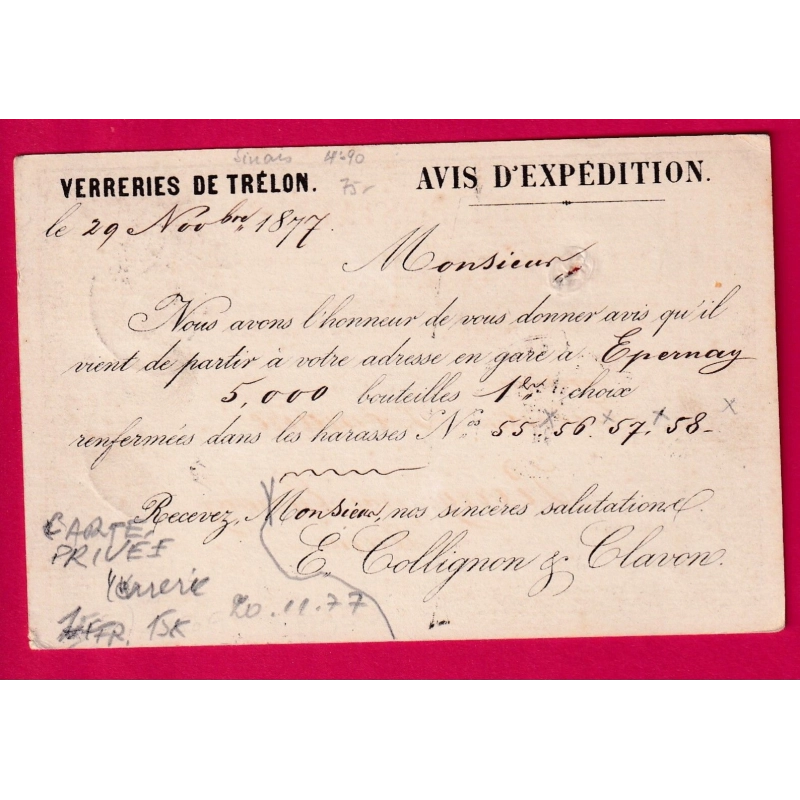 4490
75r
VERRERIES DE TRÉLON.
AVIS D'EXPÉDITION.
le 29 Novbre 1877.
Monsieur
Nous avons l'honneur de vous donner avis qu'il
vient de partir à votre adresse en gare à Epernay
5,000 bouteilles 1er choix
renfermées dans les harasses Nos 55. 56. 57. 58-
Recevez, Monsieur, nos sincères salutations.
E. Collignon & Clavon.
CARTE
PRIVÉE
Verrerie
20.11.77
FR. 15K